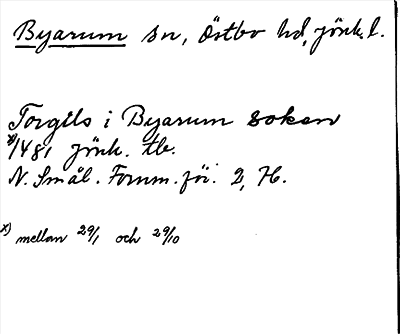 Byarum sn, Östbo hd, Jönk. l.
Torgils i Byarum soken
x)/1481 Jönk. tb.
N. Smål. Fornm. för. 2, 76.
x) mellan 29/1 och 29/10